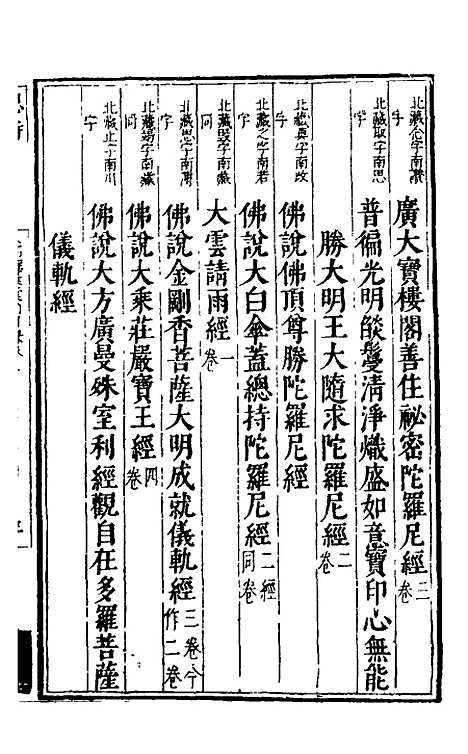 北藏念字南讚字
廣大寶樓閣善住祕密陀羅尼經三卷
北藏取字南思字
普徧光明燄鬘清淨熾盛如意寶印心無能
勝大明王大隨求陀羅尼經二卷
北藏真字南改字
佛說佛頂尊勝陀羅尼經
北藏之字南若字
佛說大白傘蓋總持陀羅尼經二經同卷
同
大雲請雨經一卷
北藏思字南
佛說金剛香菩薩大明成就儀軌經三卷今作二卷
同
佛說大乘莊嚴寶王經四卷
北藏止字南川字
佛說大方廣曼殊室利經觀自在多羅菩薩
儀軌經